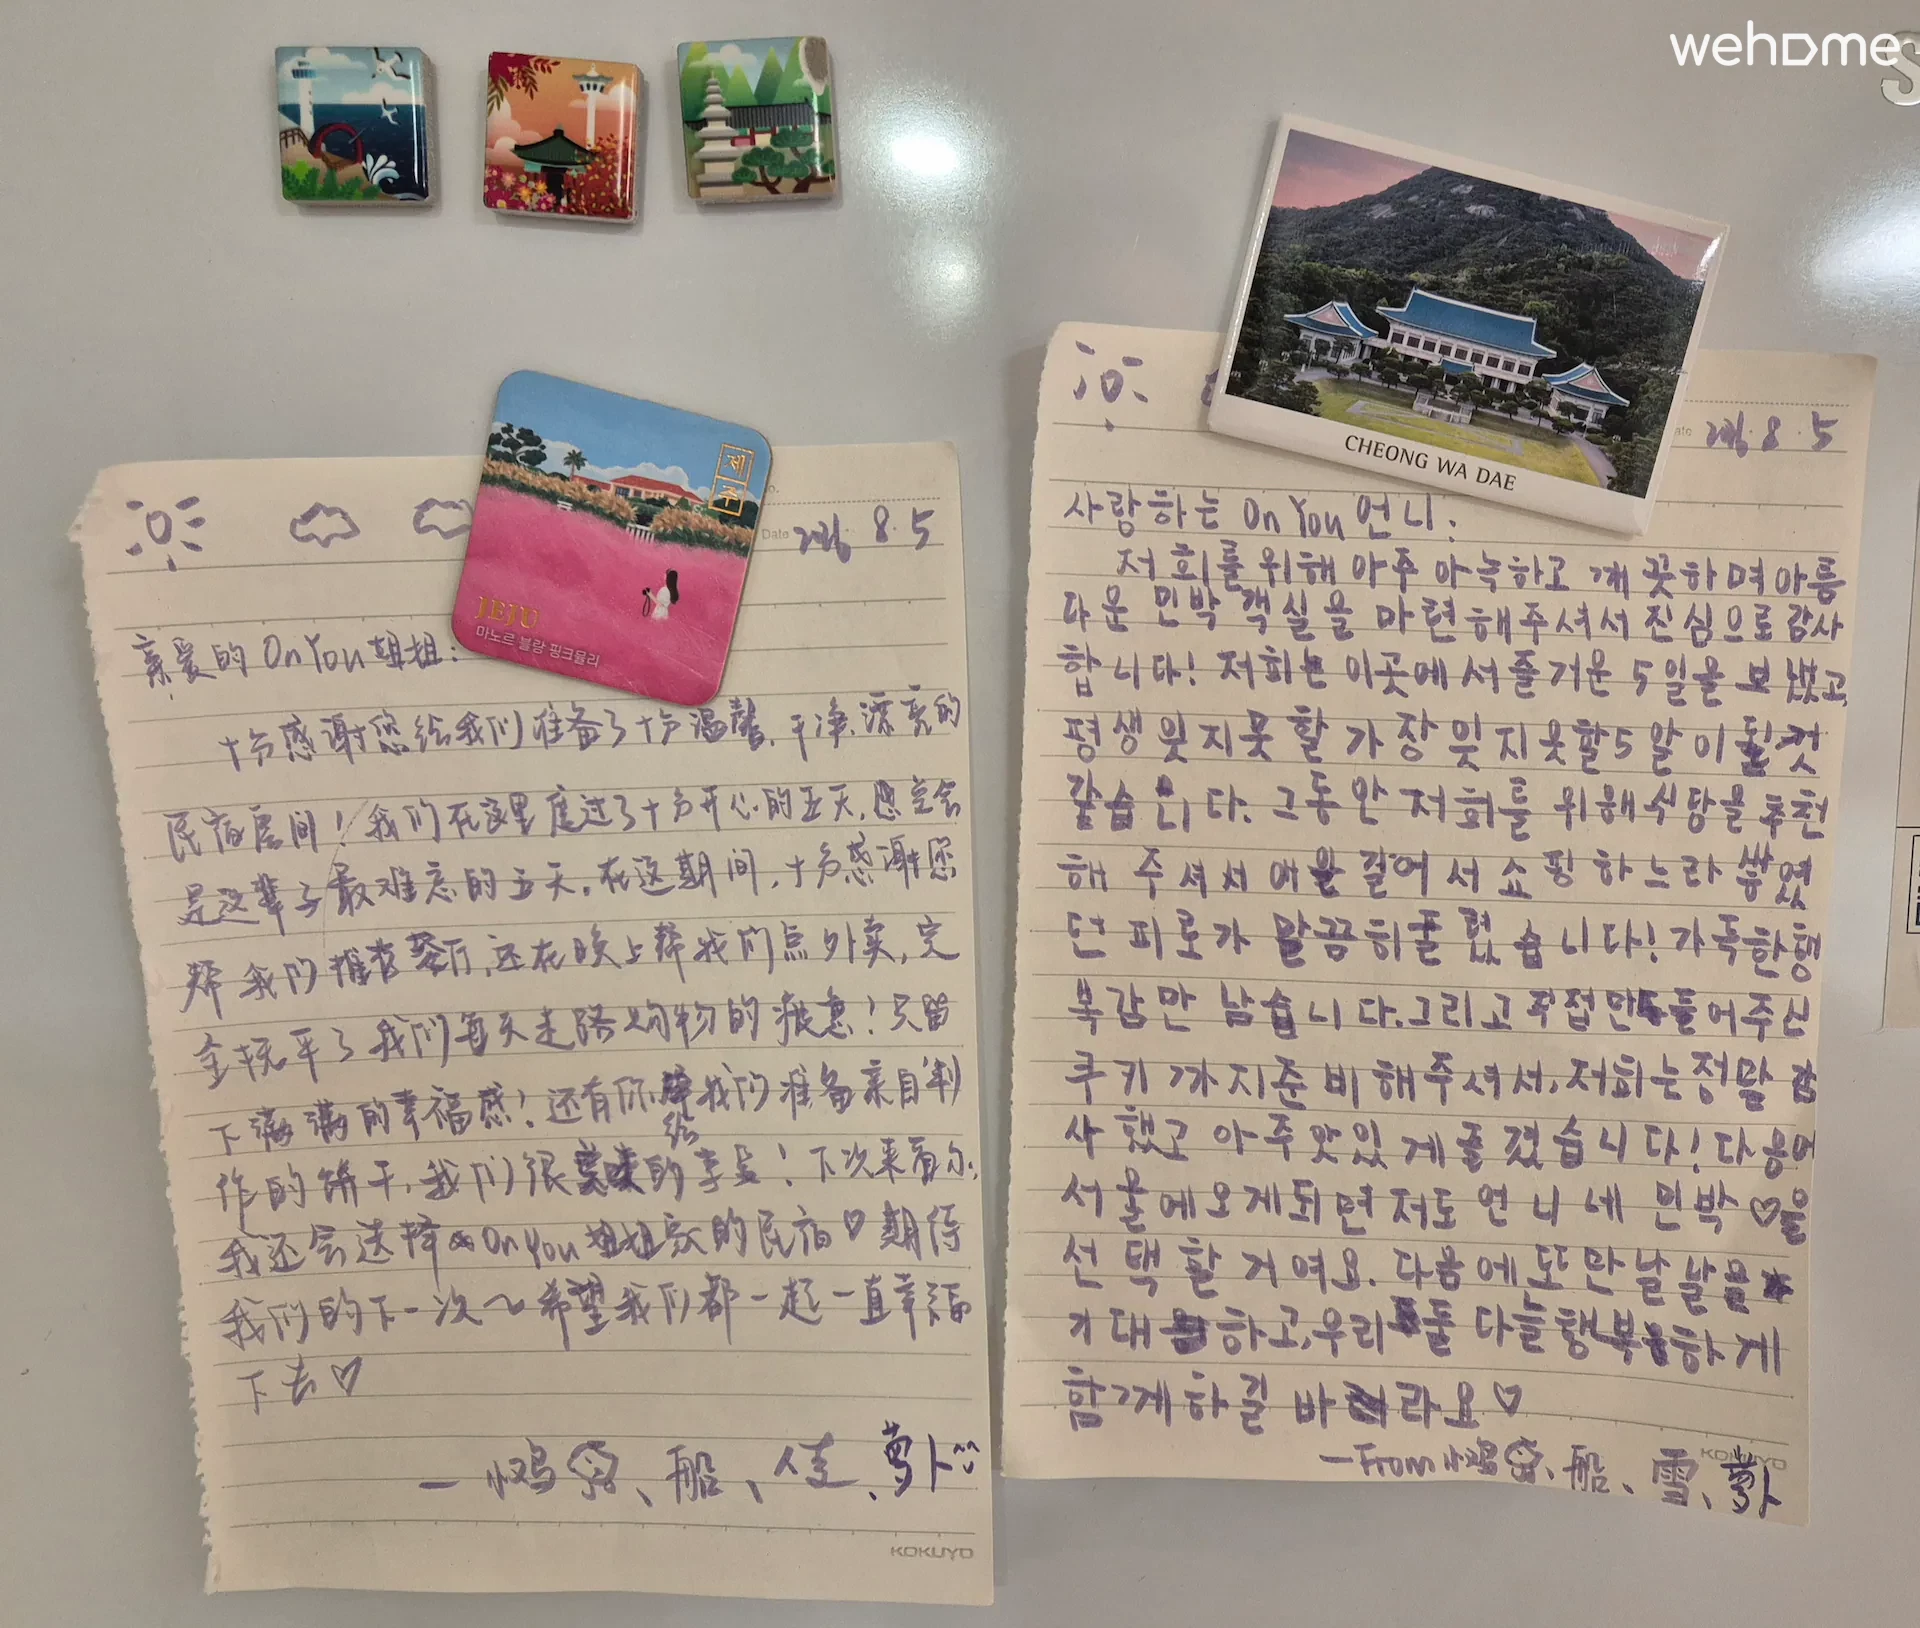 wehome
S
CHEONG WA DAE
제주
JEJU
마노르 블랑 핑크뮬리
Date 8.5
亲爱的 On You 姐姐：
十分感谢您给我们准备了十分温馨、干净、漂亮的
民宿房间！我们在这里度过了十分开心的五天，
是这辈子最难忘的五天。在这期间，十分感谢您
帮我们推荐餐厅，还在晚上帮我们点外卖，完
全抚平了我们每天走路购物的疲惫！只留
下满满的幸福感！还有你给我们准备亲自制
作的饼干，我们很美味的享受！下次来首尔，
我还会选择 On You 姐姐家的民宿♡ 期待
我们的下一次～希望我们都一起一直幸福
下去♡
— 鸡、船、佳、萝卜
KOKUYO
8.5
사랑하는 On You 언니:
저희를 위해 아주 아늑하고 깨끗하며 아름
다운 민박 객실을 마련해주셔서 진심으로 감사
합니다! 저희는 이곳에서 즐거운 5일을 보냈고,
평생 잊지못할 가장 잊지못할 5일이 될 것
같습니다. 그동안 저희를 위해 식당을 추천
해 주셔서 걸어서 쇼핑하느라 쌓였
던 피로가 말끔히 풀렸습니다! 가득한 행
복감만 남습니다. 그리고 직접 만들어주신
쿠키까지 준비해주셔서, 저희는 정말 감
사했고 아주 맛있게 즐겼습니다! 다음에
서울에 오게되면 저도 언니네 민박♡을
선택할 거여요. 다음에 또 만날 날을
기대하고, 우리 둘 다 늘 행복하게
함께하길 바라요♡
— From 鸡、船、雪、萝卜
KOKUYO